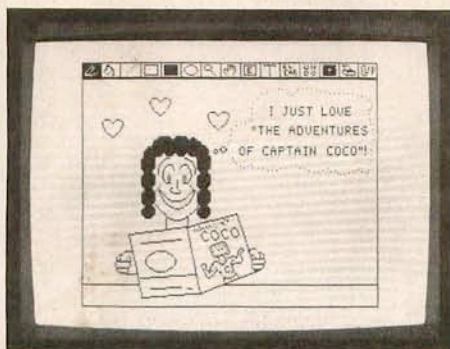 I JUST LOVE
"THE ADVENTURES
OF CAPTAIN COCO"!
COCO